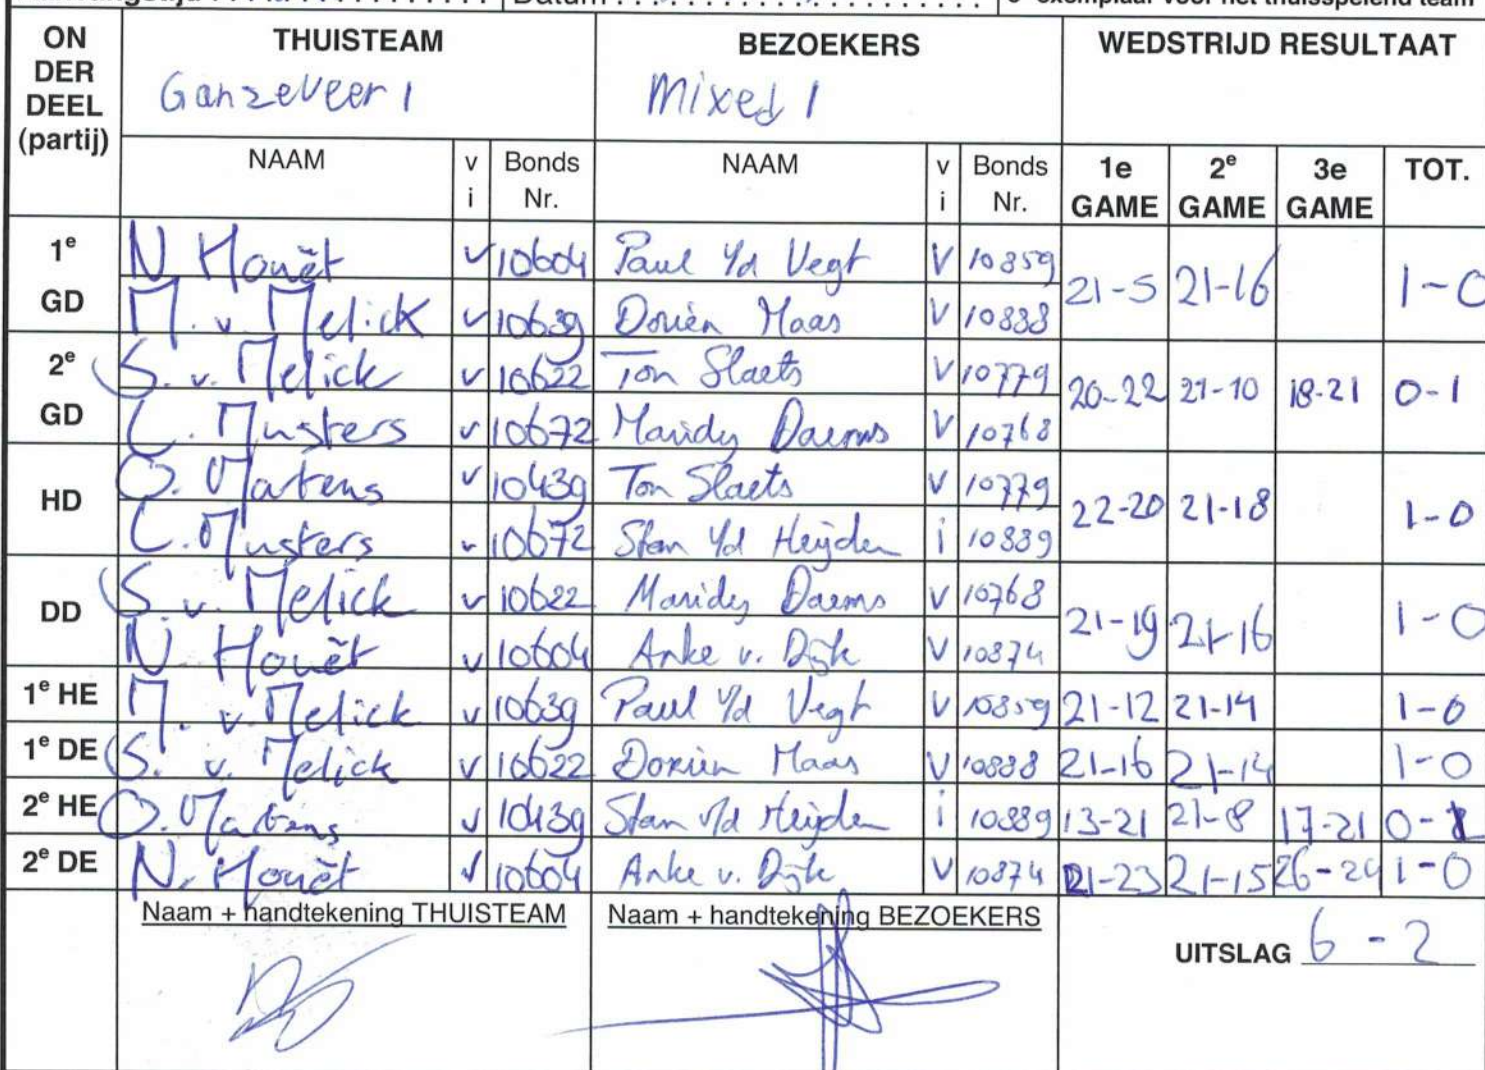 Datum
ON DER DEEL (partij) THUISTEAM BEZOEKERS WEDSTRIJD RESULTAAT
Ganzeveer 1 Mixed 1
NAAM v i Bonds Nr. NAAM v i Bonds Nr. 1e GAME 2e GAME 3e GAME TOT.
1e GD N. Houët v 10604 Paul v/d Vegt V 10859 21-5 21-16 1-0
M. v. Melick v 10639 Dorien Maas V 10888
2e GD S. v. Melick v 10622 Ton Slaets V 10779 20-22 21-10 18-21 0-1
C. Musters v 10672 Maridy Daems V 10768
HD O. Martens v 10439 Ton Slaets V 10779 22-20 21-18 1-0
C. Musters v 10672 Stan v/d Heijden i 10889
DD S. v. Melick v 10622 Maridy Daems V 10768 21-19 21-16 1-0
N. Houët v 10604 Anke v. Dijk V 10874
1e HE M. v. Melick v 10639 Paul v/d Vegt V 10859 21-12 21-14 1-0
1e DE S. v. Melick v 10622 Dorien Maas V 10888 21-16 21-14 1-0
2e HE O. Martens v 10439 Stan v/d Heijden i 10889 13-21 21-8 17-21 0-1
2e DE N. Houët v 10604 Anke v. Dijk V 10874 21-23 21-15 26-24 1-0
Naam + handtekening THUISTEAM Naam + handtekening BEZOEKERS
UITSLAG 6 - 2